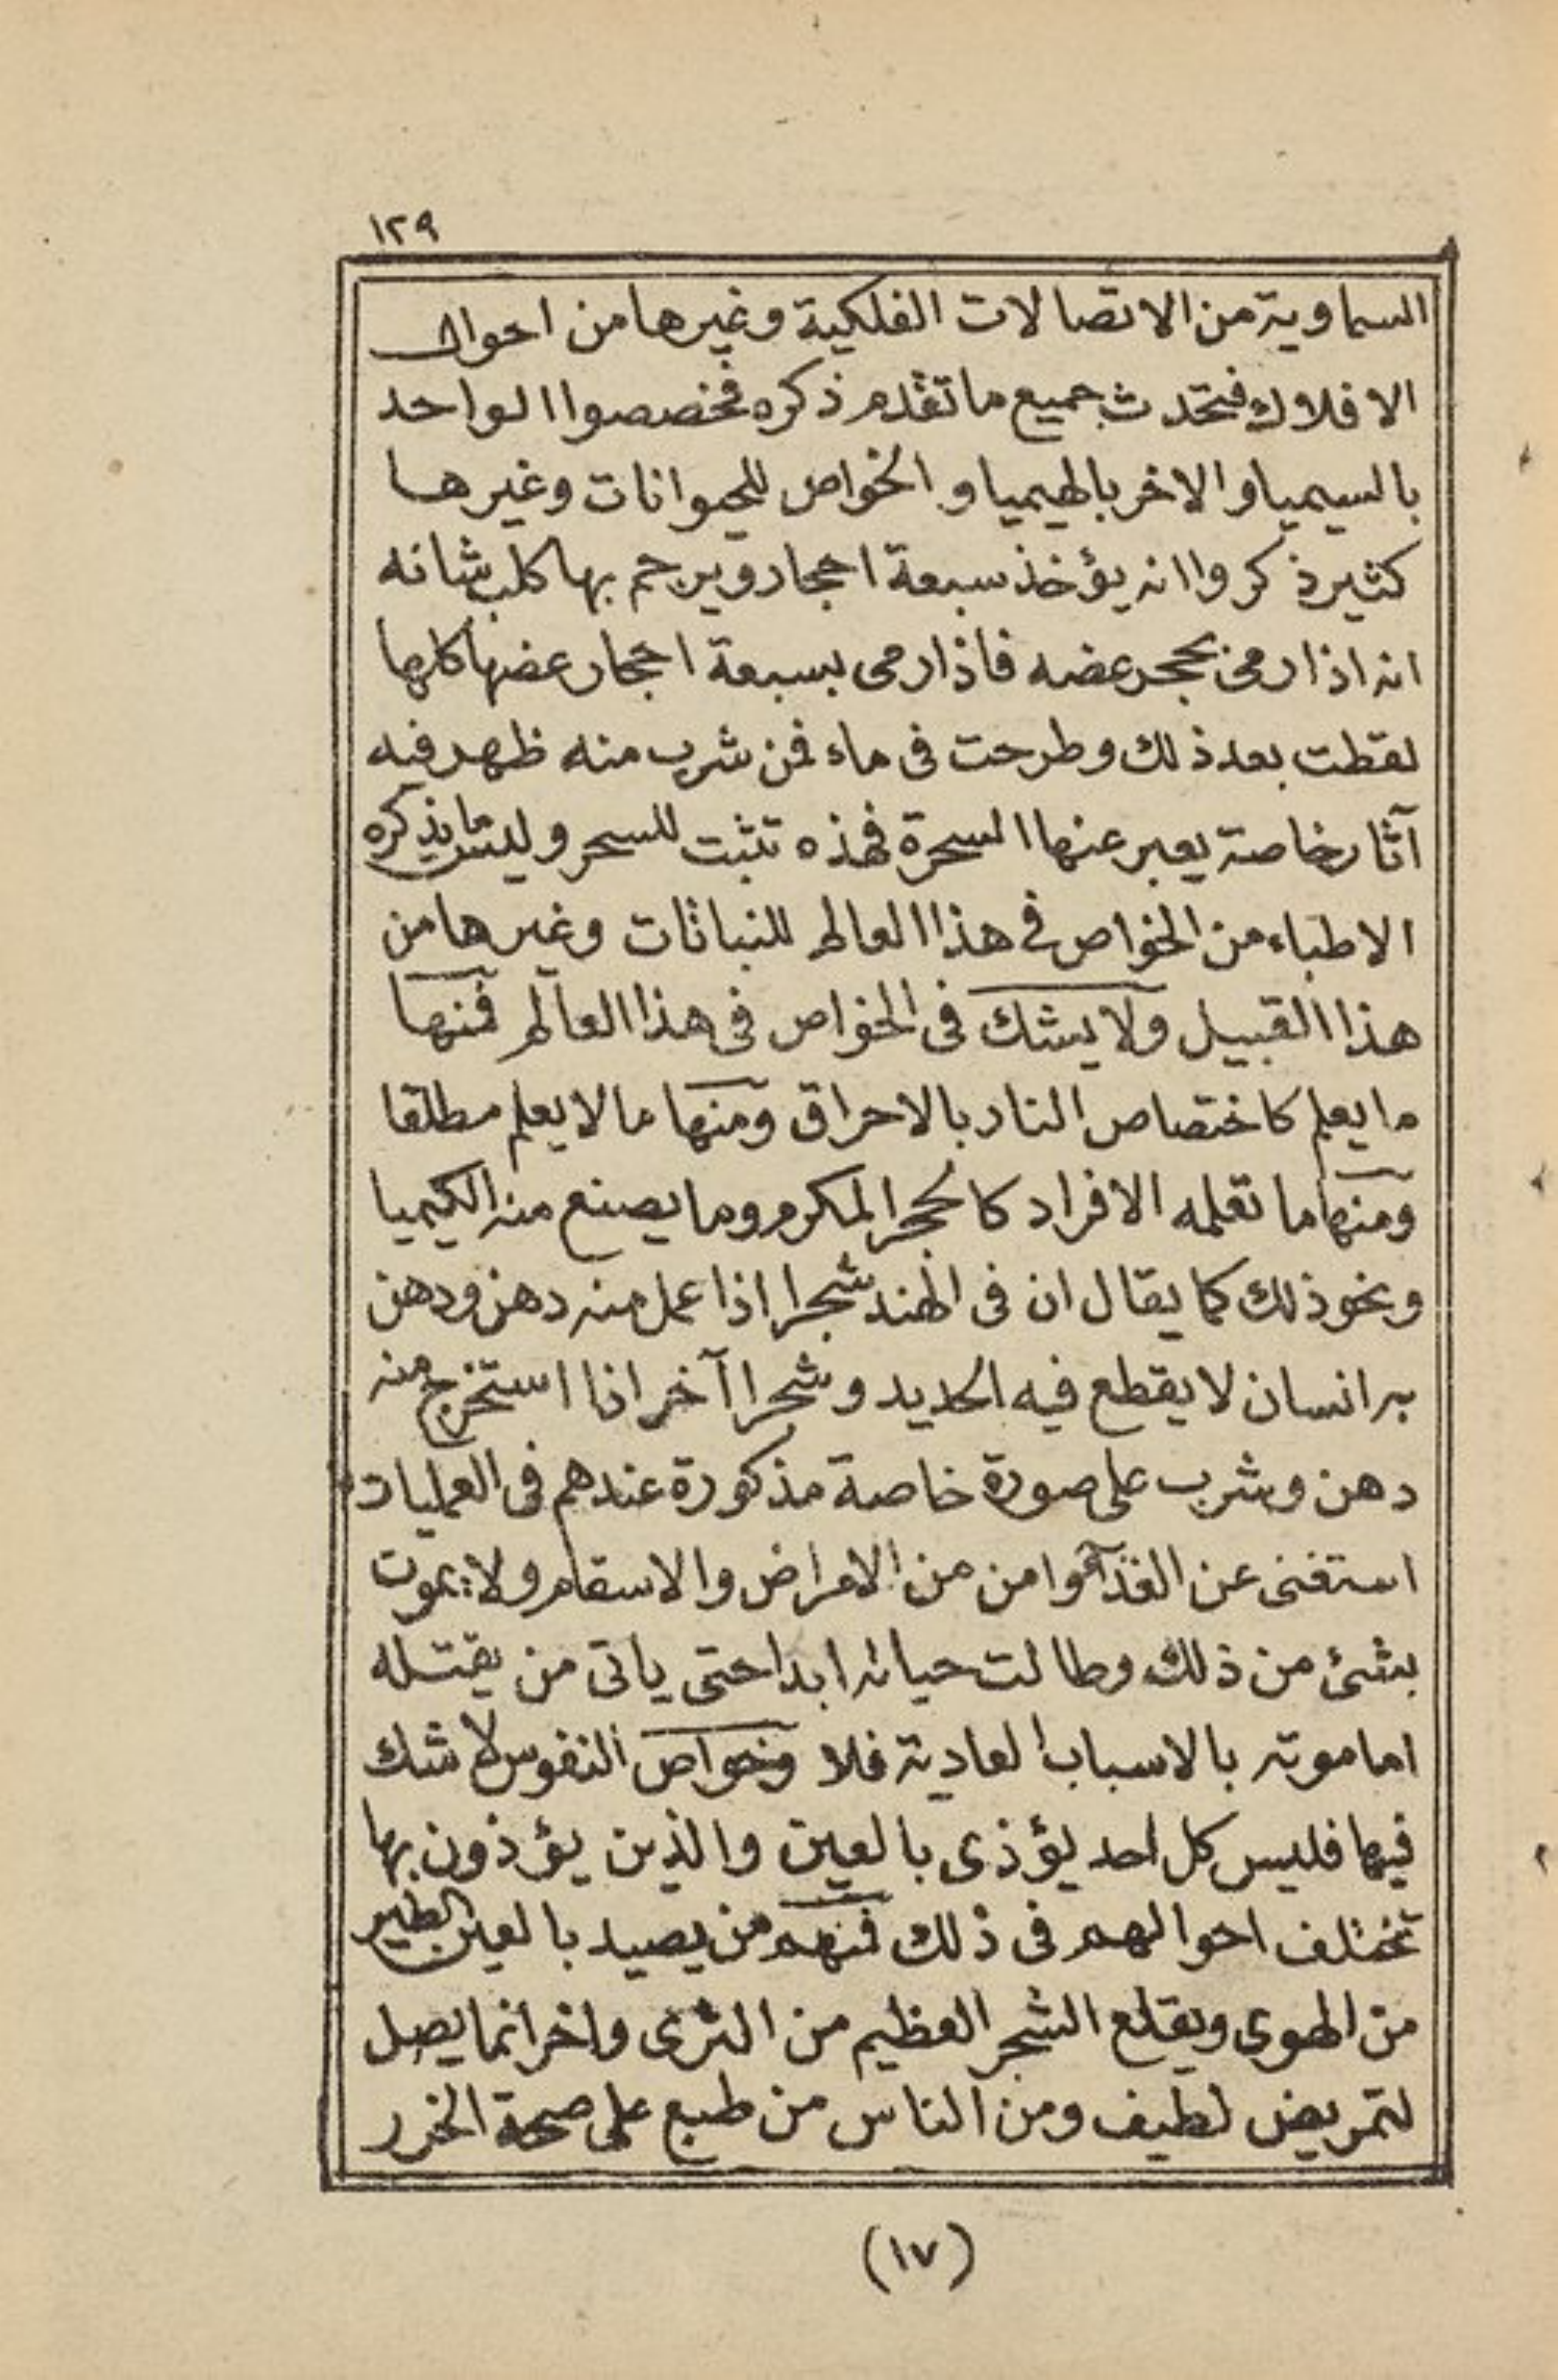 ١٢٩
السماوية من الاتصالات الفلكية وغيرها من احوال
الافلاك فتحدث جميع ما تقدم ذكره فخصصوا الواحد
بالسيميا والاخر بالهيميا و الخواص للحيوانات وغيرها
كثير ذكروا انه يؤخذ سبعة احجار ويرجم بها كلب شانه
انه اذا رمى بحجر عضه فاذا رمى بسبعة احجار عضها كلها
لقطت بعد ذلك وطرحت فى ماء فمن شرب منه ظهر فيه
آثار خاصة يعبر عنها السحرة فهذه تثبت للسحر وليس ما يذكره
الاطباء من الخواص فى هذا العالم للنباتات وغيرها من
هذا القبيل ولا يشك فى الخواص فى هذا العالم فمنها
ما يعلم كاختصاص النار بالاحراق ومنها ما لا يعلم مطلقا
ومنها ما تعلمه الافراد كالحجر المكرم وما يصنع منه الكيميا
ونحو ذلك كما يقال ان فى الهند شجرا اذا عمل منه دهن ودهن
به انسان لا يقطع فيه الحديد وشجرا آخر اذا استخرج منه
دهن وشرب على صورة خاصة مذكورة عندهم فى العمليات
استغنى عن الغذآء وامن من الامراض والاسقام ولا يموت
بشئ من ذلك وطالت حياته ابدا حتى ياتى من يقتله
اما موته بالاسباب العادية فلا وخواص النفوس لا شك
فيها فليس كل احد يؤذى بالعين والذين يؤذون بها
تختلف احوالهم فى ذلك فمنهم من يصيد بالعين الطير
من الهوى ويقلع الشجر العظيم من الثرى واخر انما يصل
لتمريض لطيف ومن الناس من طبع على صحة الخزر
(١٧)